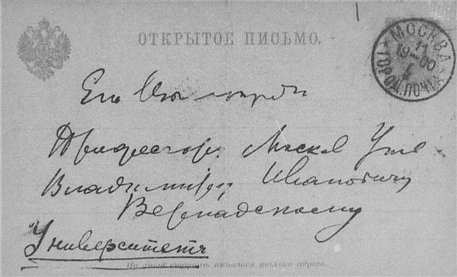 ОТКРЫТОЕ ПИСЬМО.
МОСКВА
11
19-00
ГОРОД. ПОЧТА
Его
Профессору Моск Унив
Владимиру Ивановичу
Вернадскому
Университетъ
На этой сторонѣ пишется только адресъ.